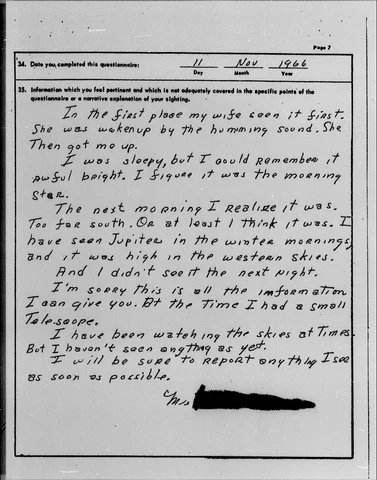 Page 7
34. Date you completed this questionnaire: 11 Nov 1966
Day Month Year
35. Information which you feel pertinent and which is not adequately covered in the specific points of the
questionnaire or a narrative explanation of your sighting.
In the first place my wife seen it first.
She was wakenup by the humming sound. She
Then got me up.
I was sleepy, but I could remember it
awful bright. I figure it was the morning
star.
The next morning I Realize it was.
Too far south. Or at least I think it was. I
have seen Jupiter in the winter mornings,
and it was high in the western skies.
And I didn't see it the next night.
I'm sorry this is all the imformation
I can give you. At the Time I had a small
Telescope.
I have been watching the skies at Times.
But I haven't seen anything as yet.
I will be sure to report anything I see
as soon as possible.
Mrs